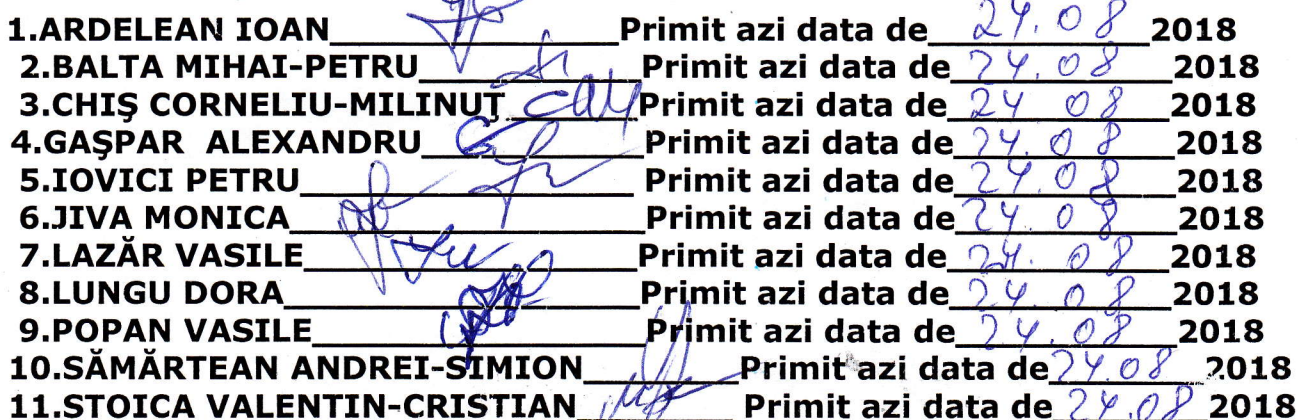 1.ARDELEAN IOAN____Primit azi data de 24.08 2018
2.BALTA MIHAI-PETRU____Primit azi data de 24.08 2018
3.CHIŞ CORNELIU-MILINUŢ____Primit azi data de 24 08 2018
4.GAŞPAR ALEXANDRU____Primit azi data de 24.08 2018
5.IOVICI PETRU____Primit azi data de 24.08 2018
6.JIVA MONICA____Primit azi data de 24.08 2018
7.LAZĂR VASILE____Primit azi data de 24.08 2018
8.LUNGU DORA____Primit azi data de 24.08 2018
9.POPAN VASILE____Primit azi data de 24.08 2018
10.SĂMĂRTEAN ANDREI-SIMION____Primit azi data de 24.08 2018
11.STOICA VALENTIN-CRISTIAN____Primit azi data de 24.08 2018